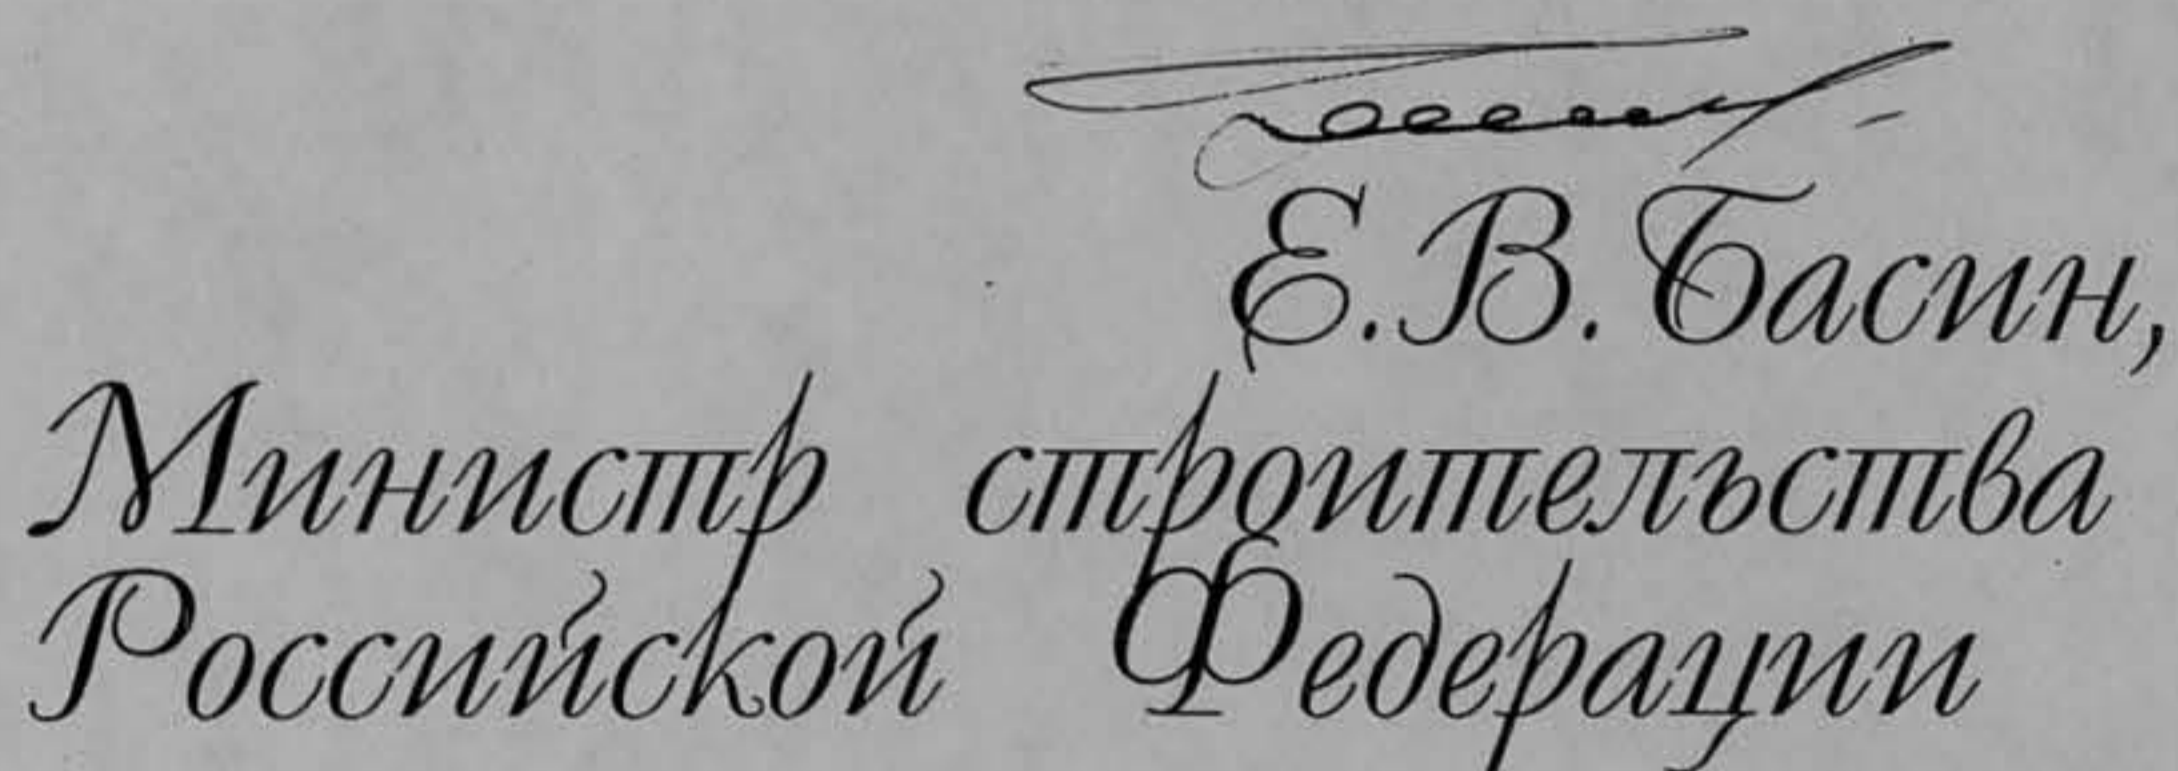 Е.В. Басин,
Министр строительства
Российской Федерации